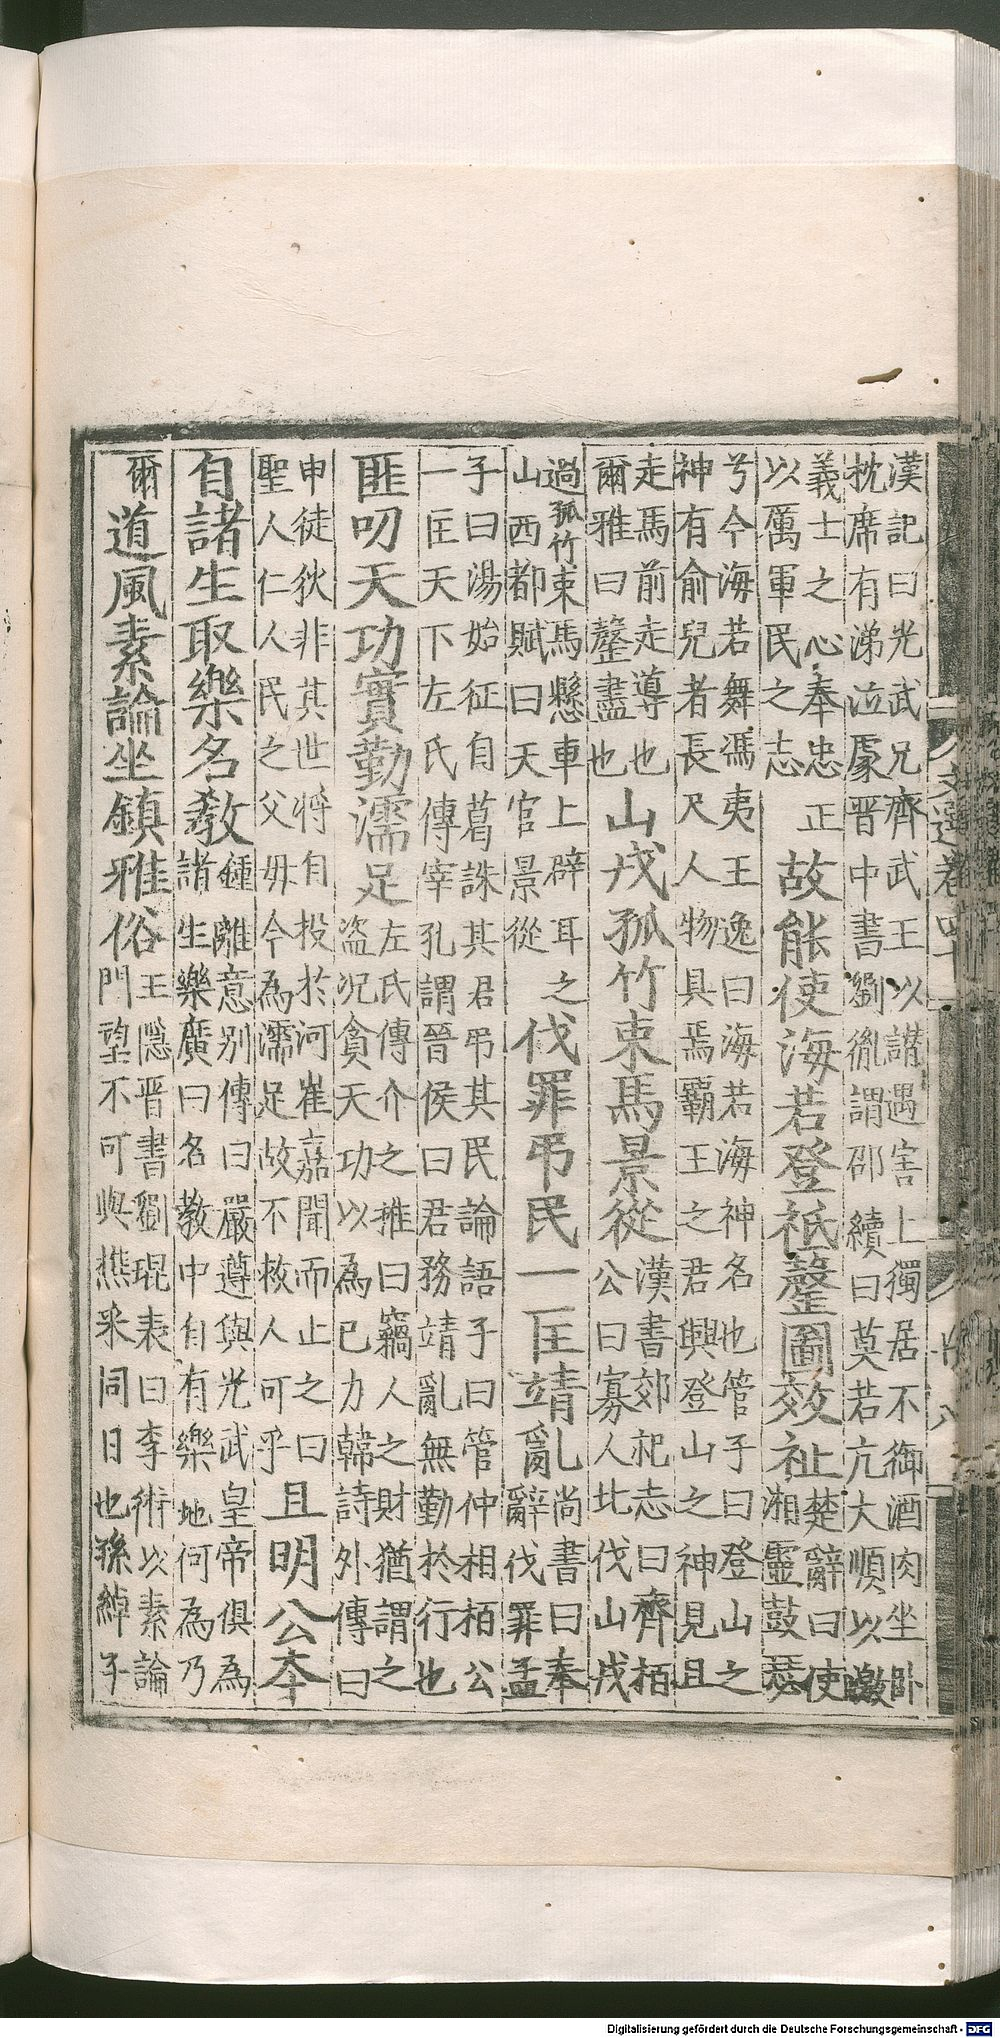 漢記曰光武兄齊武王以譖遇害上獨居不御酒肉坐卧
枕席有涕泣處晋中書劉胤謂邵續曰莫若亢大順以激
義士之心奉忠正故能使海若登祗罄圖效祉楚辭曰使
以厲軍民之志湘靈鼓瑟
兮令海若舞馮夷王逸曰海若海神名也管子曰登山之
神有俞兒者長尺人物具焉霸王之君興登山之神見且
走馬前走導也山戎孤竹束馬景從漢書郊祀志曰齊栢
爾雅曰罄盡也公曰寡人北伐山戎
過孤竹束馬懸車上辟耳之伐罪弔民一匡靖亂尚書曰奉
山西都賦曰天官景從辭伐罪孟
子曰湯始征自葛誅其君弔其民論語子曰管仲相栢公
一匡天下左氏傳宰孔謂晉侯曰君務靖亂無勤於行也
匪叨天功實勤濡足左氏傳介之推曰竊人之財猶謂之
盜況貪天功以為己力韓詩外傳曰
申徒狄非其世將自投於河崔嘉聞而止之曰
聖人仁人民之父母今為濡足故不救人可乎且明公本
自諸生取樂名教鍾離意别傳曰嚴遵與光武皇帝俱為
諸生樂廣曰名教中自有樂地何為乃
爾道風素論坐鎮雅俗王隱晋書劉琨表曰李術以素論
門望不可與樵采同日也孫綽子
文選卷四十
Digitalisierung gefördert durch die Deutsche Forschungsgemeinschaft - DFG